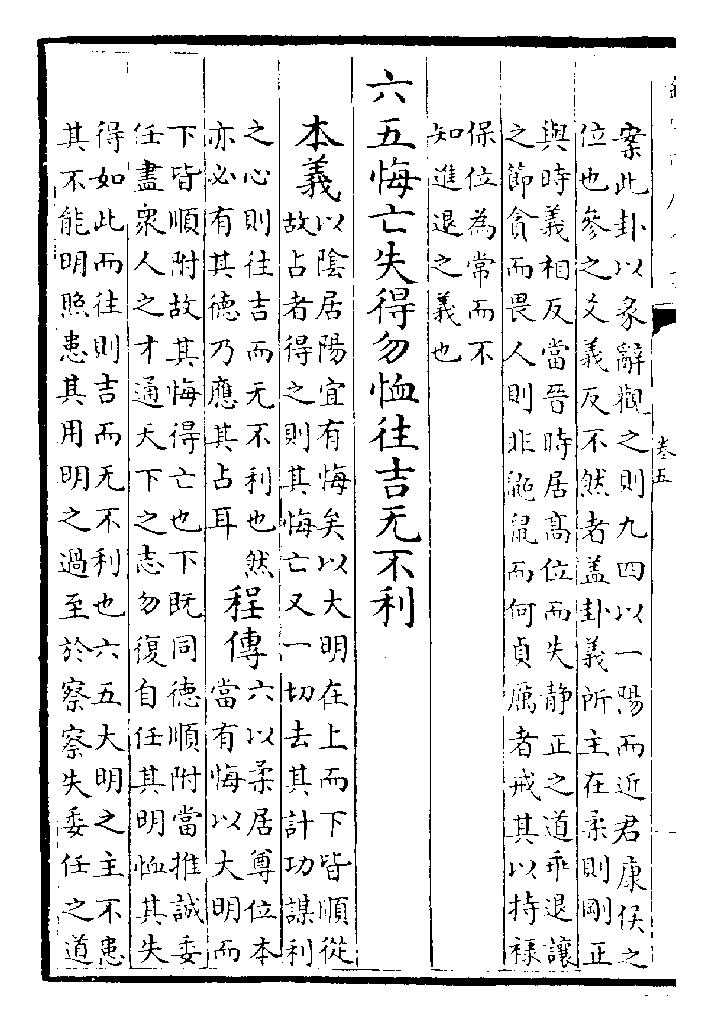 卷五
案此卦以彖辭觀之則九四以一陽而近君康侯之
位也參之爻義反不然者蓋卦義所主在柔則剛正
與時義相反當晉時居高位而失静正之道乖退讓
之節貪而畏人則非鼫鼠而何貞厲者戒其以持祿
保位為常而不
知進退之義也
六五悔亡失得勿恤往吉无不利
本義
以陰居陽宜有悔矣以大明在上而下皆順從
故占者得之則其悔亡又一切去其計功謀利
之心則往吉而无不利也然
亦必有其德乃應其占耳
程傳
六以柔居尊位本
當有悔以大明而
下皆順附故其悔得亡也下既同德順附當推誠委
任盡衆人之才通天下之志勿復自任其明恤其失
得如此而往則吉而无不利也六五大明之主不患
其不能明照患其用明之過至於察察失委任之道